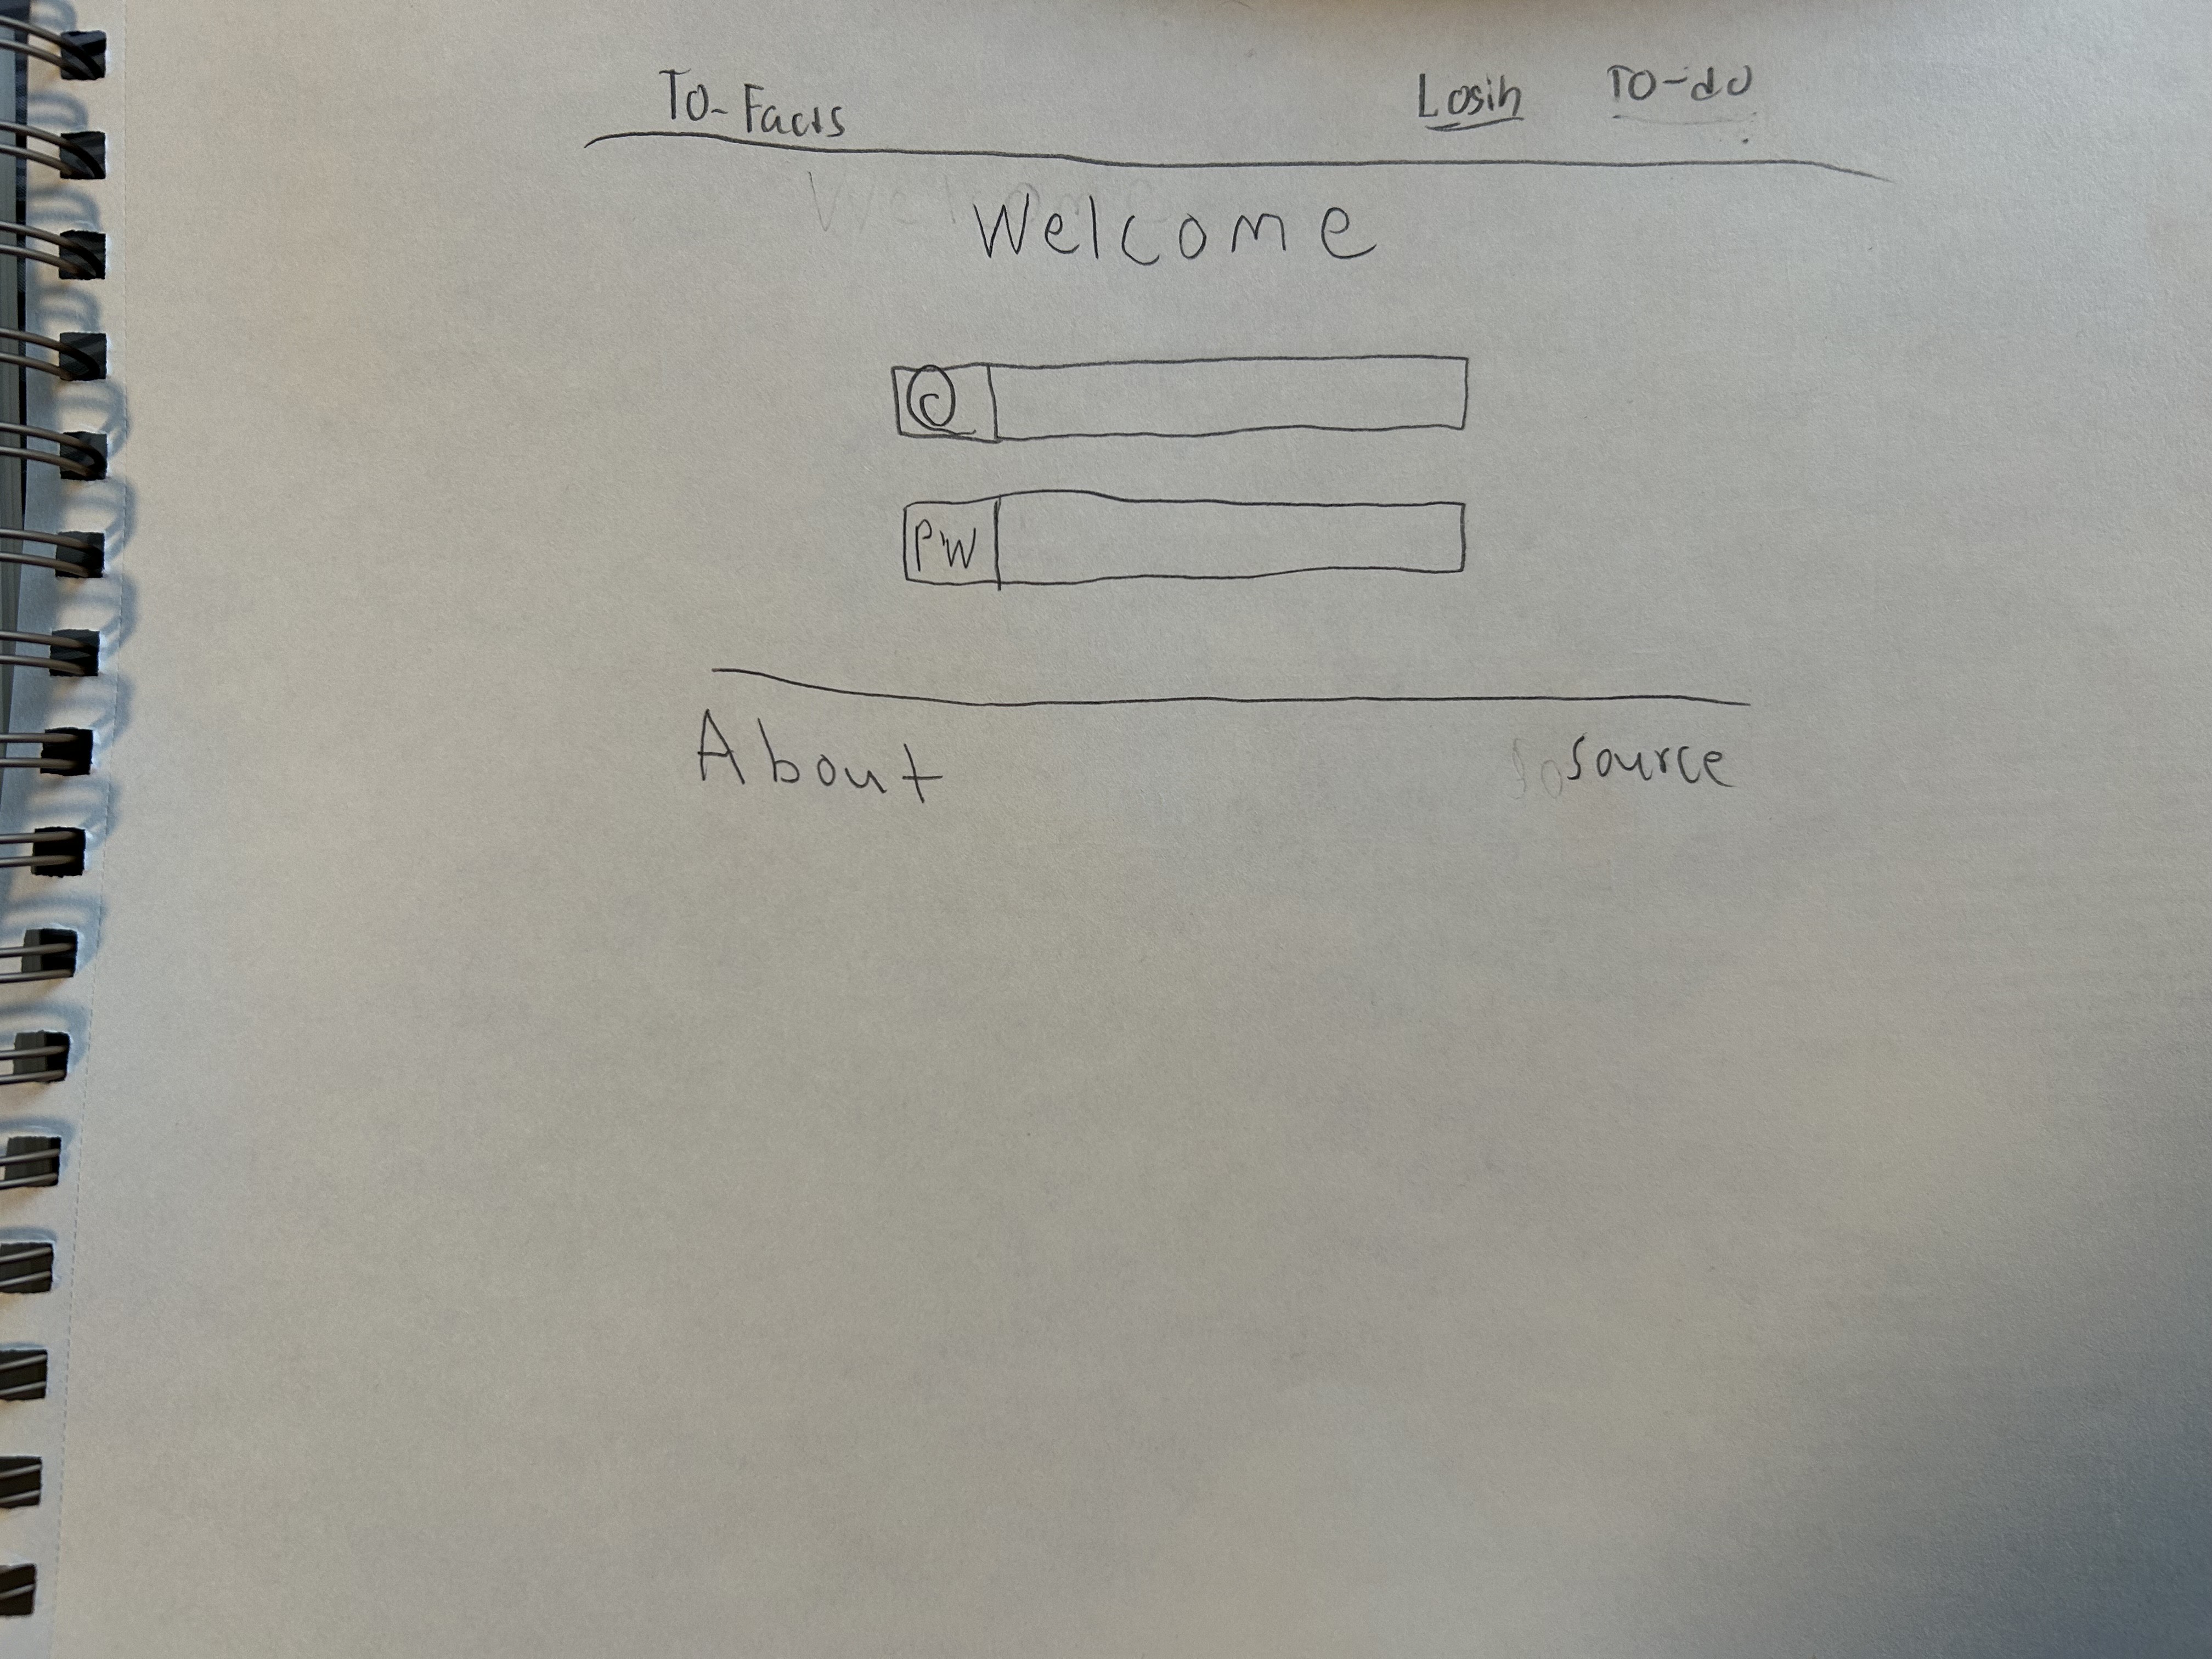 To-Facts Login To-do
Welcome
@
PW
About Source